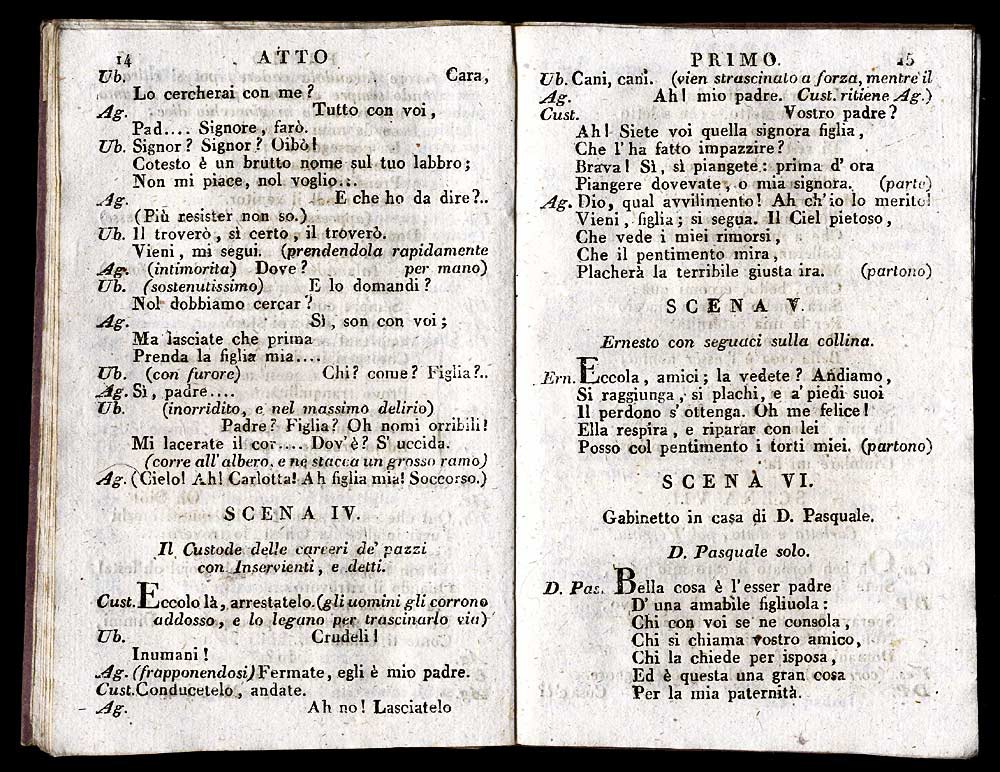 14 ATTO
Ub. Cara,
Lo cercherai con me?
Ag. Tutto con voi,
Pad.... Signore, farò.
Ub. Signor? Signor? Oibò!
Cotesto è un brutto nome sul tuo labbro;
Non mi piace, nol voglio...
Ag. E che ho da dire?..
(Più resister non so.)
Ub. Il troverò, sì certo, il troverò.
Vieni, mi segui. (prendendola rapidamente
Ag. (intimorita) Dove? per mano)
Ub. (sostenutissimo) E lo domandi?
Nol dobbiamo cercar?
Ag. Sì, son con voi;
Ma lasciate che prima
Prenda la figlia mia....
Ub. (con furore) Chi? come? Figlia?..
Ag. Sì, padre....
Ub. (inorridito, e nel massimo delirio)
Padre? Figlia? Oh nomi orribili!
Mi lacerate il cor.... Dov'è? S'uccida.
(corre all'albero, e ne stacca un grosso ramo)
Ag. (Cielo! Ah! Carlotta! Ah figlia mia! Soccorso.)
SCENA IV.
Il Custode delle carceri de' pazzi
con Inservienti, e detti.
Cust. Eccolo là, arrestatelo. (gli uomini gli corrono
addosso, e lo legano per trascinarlo via)
Ub. Crudeli!
Inumani!
Ag. (frapponendosi) Fermate, egli è mio padre.
Cust. Conducetelo, andate.
Ag. Ah no! Lasciatelo
PRIMO. 15
Ub. Cani, cani. (vien strascinato a forza, mentre il
Ag. Ah! mio padre. Cust. ritiene Ag.)
Cust. Vostro padre?
Ah! Siete voi quella signora figlia,
Che l'ha fatto impazzire?
Brava! Sì, sì piangete: prima d'ora
Piangere dovevate, o mia signora. (parte)
Ag. Dio, qual avvilimento! Ah ch'io lo merito!
Vieni, figlia; si segua. Il Ciel pietoso,
Che vede i miei rimorsi,
Che il pentimento mira,
Placherà la terribile giusta ira. (partono)
SCENA V.
Ernesto con seguaci sulla collina.
Ern. Eccola, amici; la vedete? Andiamo,
Si raggiunga, si plachi, e a' piedi suoi
Il perdono s'ottenga. Oh me felice!
Ella respira, e riparar con lei
Posso col pentimento i torti miei. (partono)
SCENA VI.
Gabinetto in casa di D. Pasquale.
D. Pasquale solo.
D. Pas. Bella cosa è l'esser padre
D'una amabile figliuola:
Chi con voi se ne consola,
Chi si chiama vostro amico,
Chi la chiede per isposa,
Ed è questa una gran cosa
Per la mia paternità.